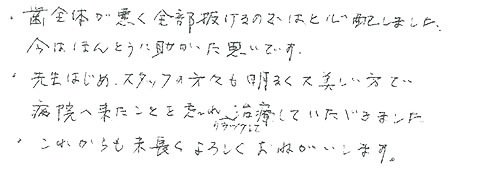 ・歯全体が悪く全部抜けるのではと心配しました。
今はほんとうに助かった思いです。
・先生はじめ、スタッフの方々も明るく又美しい方で
病院へ来たことを忘れ治療していただきました
リラックスして
・これからも末長くよろしくおねがいします。